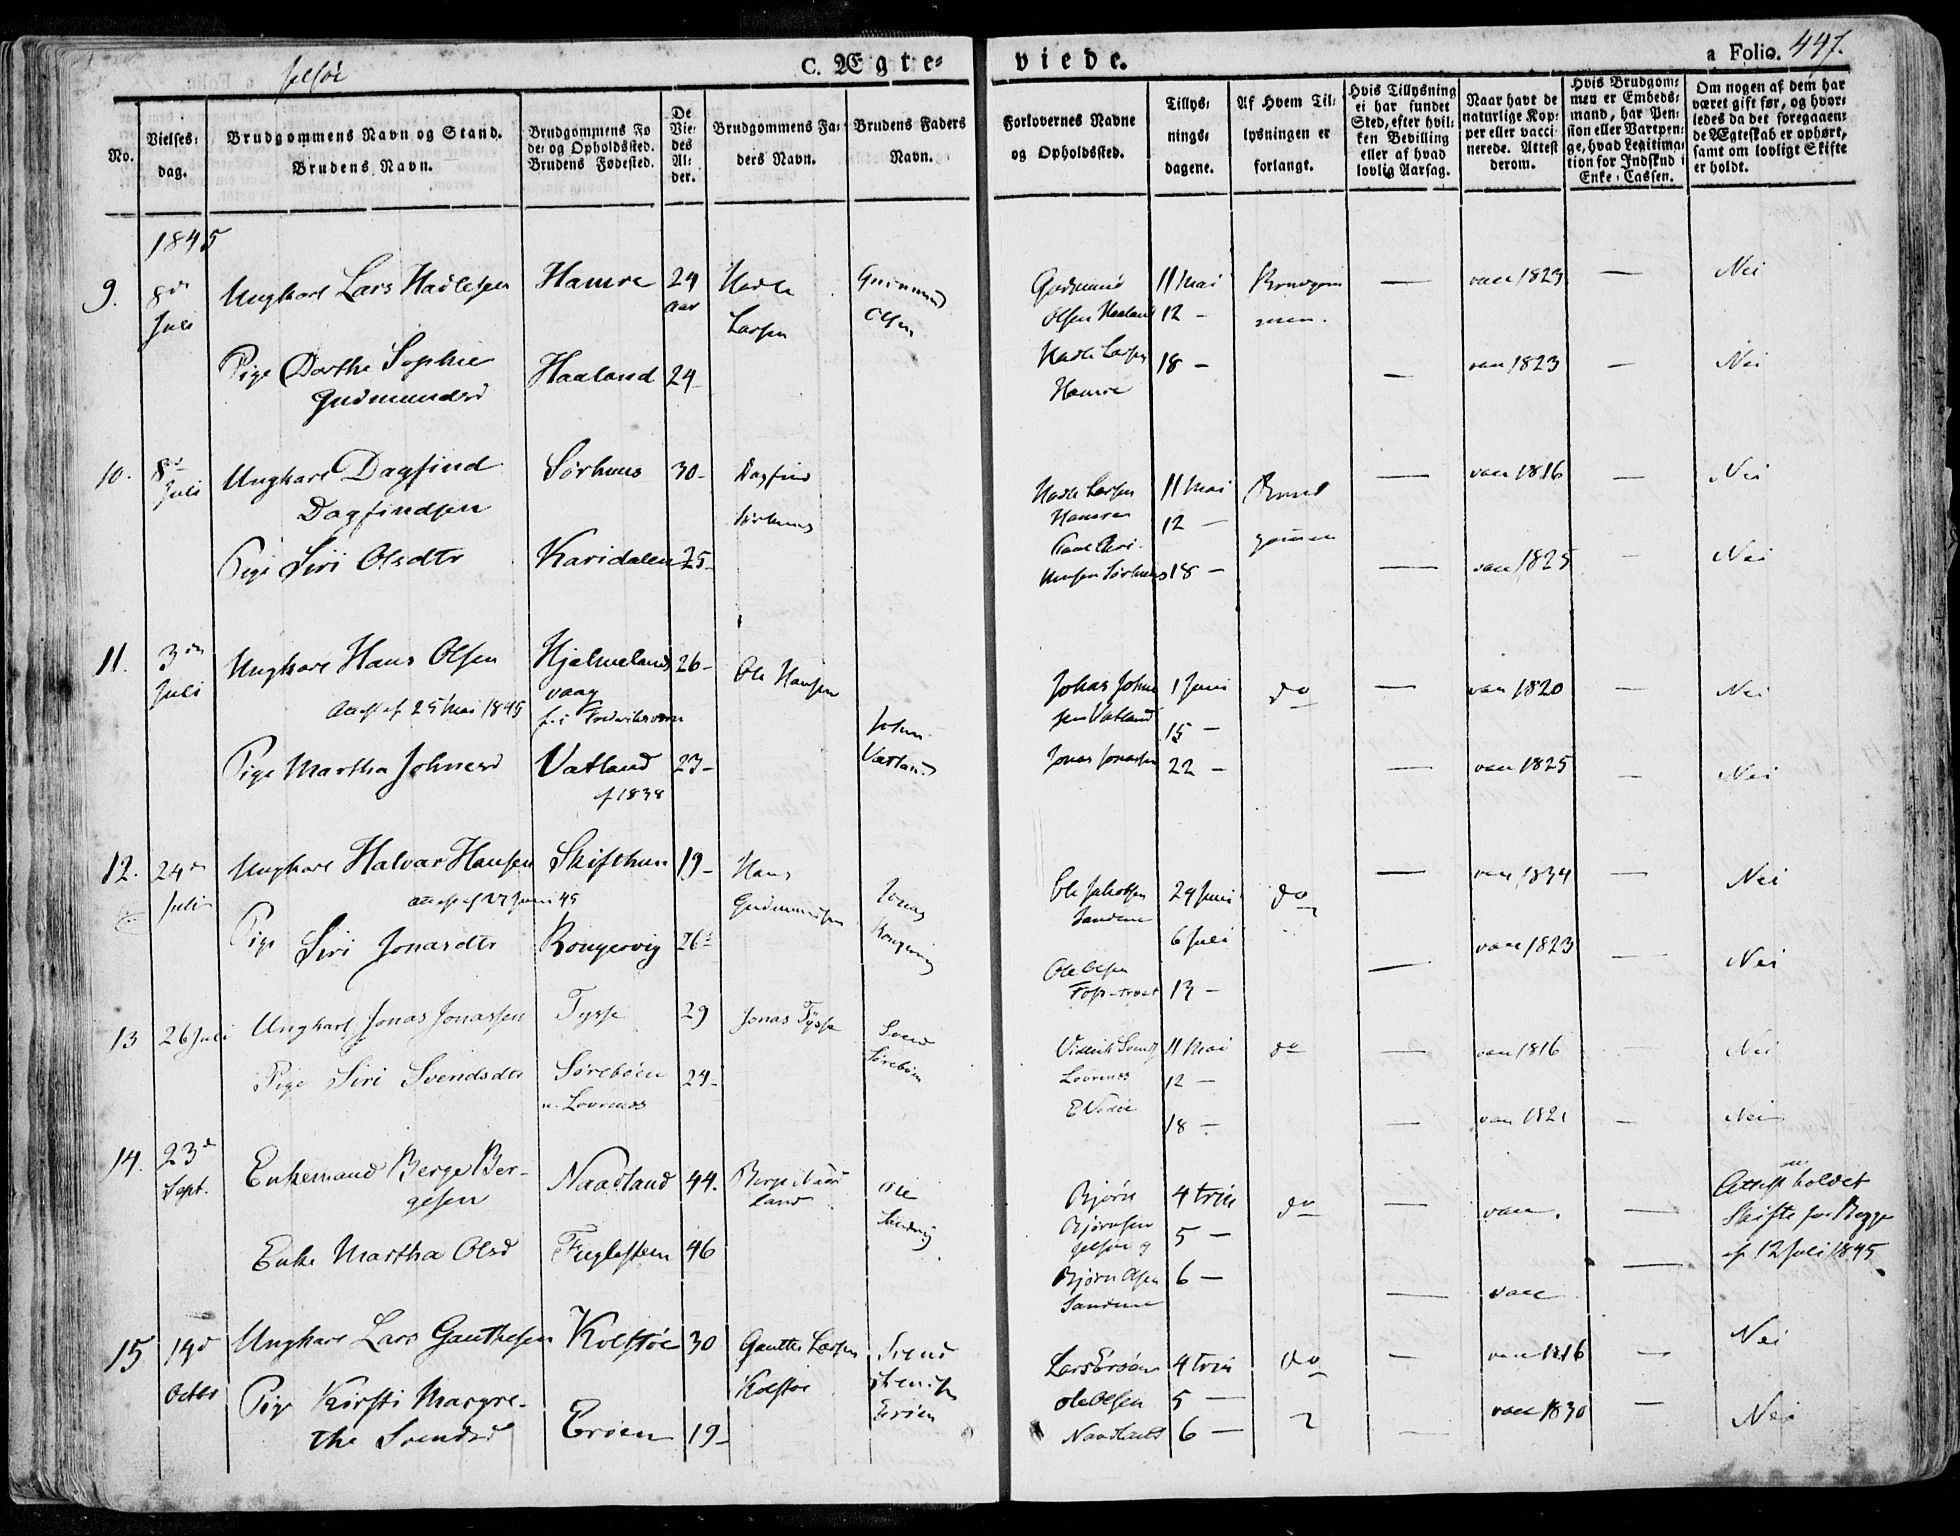 Jelsøe
C. Ægte-
viede.
a Folio. 447.
No.
Vielses-
dag.
Brudgommens Navn og Stand.
Brudens Navn.
Brudgommens Fø
de- og Opholdssted.
Brudens Fødested.
De
Vie-
des
Al-
der.
Brudgommens Fa-
ders Navn.
Brudens Faders
Navn.
Forlovernes Navne
og Opholdssted.
Tillys-
nings-
dagene.
Af Hvem Til-
lysningen er
forlangt.
Hvis Tillysning
ei har fundet
Sted, efter hvil-
ken Bevilling
eller af hvad
lovlig Aarsag.
Naar havt de
naturlige Kop-
per eller vacci-
nerede. Attest
derom.
Hvis Brudgom-
men er Embeds-
mand, har Pen-
sion eller Vartpen-
ge, hvad Legitima-
tion for Indskud i
Enke-Cassen.
Om nogen af dem har
været gift før, og hvor-
ledes da det foregaaen-
de Ægteskab er ophørt,
samt om lovligt Skifte
er holdt.
1845
9. 8de Juli
Ungkarl Lars Hadlesen Hamre 24 aar
Hadle Larsen
Gudmund Olsen
Gudmund Olsen Haaland
11 Mai
12 -
18 -
Brudgom-
men.
— vacc 1823 — Nei
Pige Dorthe Sophie
Gudmundsd Haaland 24-
Hadle Larsen
Hamre
— vacc 1823 — Nei
10. 8de Juli
Ungkarl Dagfind
Dagfindsen Sørhuus 30-
Dagfind
Sørhuus
Hadle Larsen
Hamre
11 Mai
12 -
18 -
Brud
gommen
— vacc 1816 — Nei
Pige Siri Olsdtr Karidalen 25-
Sørhuus
— vacc 1825 — Nei
11. 3die Juli
Ungkarl Hans Olsen Hjelmelands
vaag 26-
Attest af 25 Mai 1845
f. i Frederiksværn
Ole Hansen
John
Vatland
Johas John
sen Vatland
1 Juni
15 -
22 -
do — vacc 1820 — Nei
Pige Martha Johnesd Vatland 23-
f 1838
Jonas Jonassen
— vacc 1825 — Nei
12. 24de Juli
Ungkarl Halvar Hansen Skifthun 19-
Attest af 27 Juni 45
Hans
Gudmundsen
Jonas
Rongevig
Ole Jakobsen
Sandene
29 Juni
6 Juli
13 -
do — vacc 1834 — Nei
Pige Siri Jonasdtr Rongevig 26-
Ole Olsen
— vacc 1823 — Nei
13 26 Juli
Ungkarl Jonas Jonassen Tysse 29
Jonas Tysse
Svend
Sørebøen
Lovrenss
11 Mai
12 -
18 -
do — vacc 1816 — Nei
Pige Siri Svendsdtr Sørebøen 24-
Lovrenss
— vacc 1821 — Nei
14. 23de Sept.
Enkemand Berge Ber-
gesen Naadland 44.
Berge Naad
land
Ole
Sandvig
Bjørn
Bjørnsen
Jelsøe og
Bjørn Olsen
Sandene
4 trin
5 -
6 -
do — vacc. —
Attest om holdet
Skifte for Begge
af 12 Juli 1845
Enke Martha Olsd Fuglesteen 46
— vacc —
15 14de Octbr
Ungkarl Lars Gauthesen Kolstøe 30
Gauthe Larsen
Kolstøe
Svend
Erøen
Lars Erøen
Ole Olsen
Naadland
4 trin
5 -
6 -
do — vacc 1816 — Nei
Pige Kirsti Margre-
the Svendsd Erøen 19-
— vacc 1830 — Nei